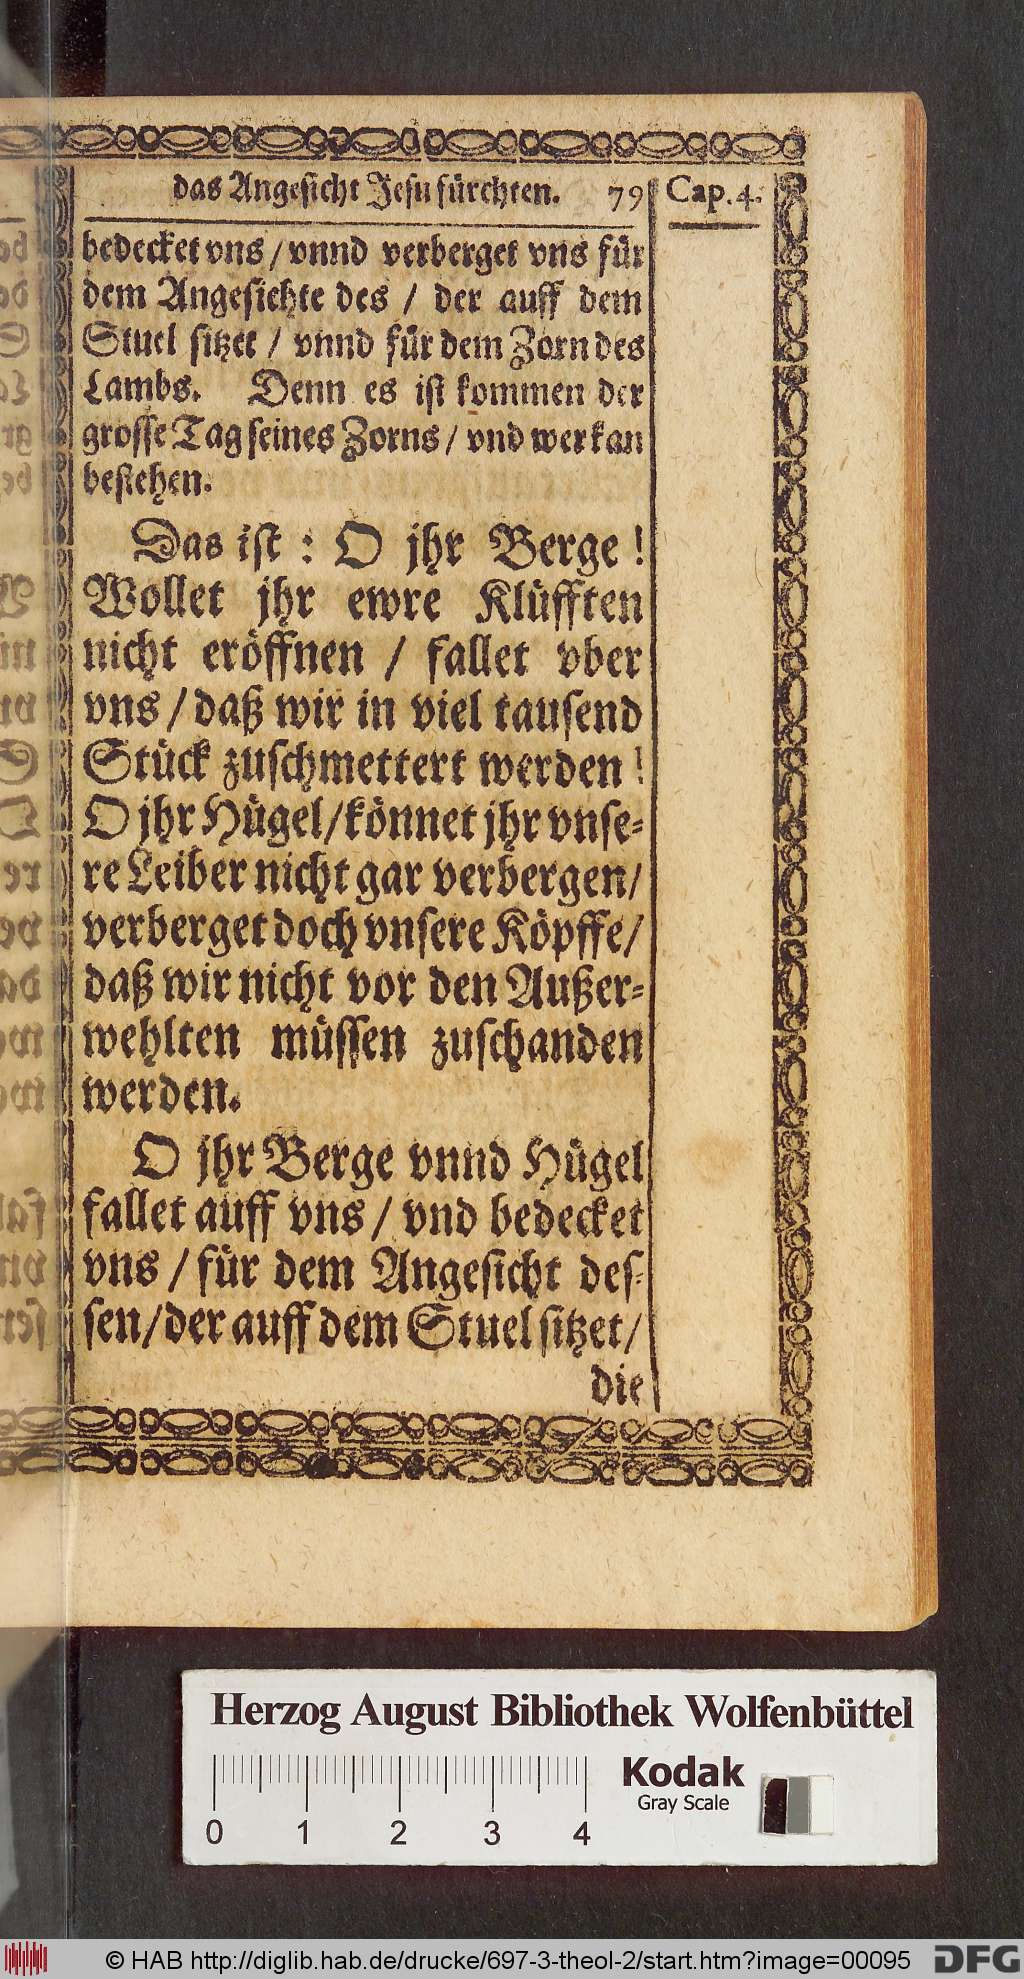 das Angesicht Jesu fürchten. 79 Cap. 4.
bedecket vns / vnnd verberget vns für
dem Angesichte des / der auff dem
Stuel sitzet / vnnd für dem Zorn des
Lambs. Denn es ist kommen der
grosse Tag seines Zorns / vnd wer kan
bestehen.
Das ist : O jhr Berge !
Wollet jhr ewre Klüfften
nicht eröffnen / fallet vber
vns / daß wir in viel tausend
Stück zuschmettert werden !
O jhr Hügel / könnet jhr vnse-
re Leiber nicht gar verbergen /
verberget doch vnsere Köpffe /
daß wir nicht vor den Außer-
wehlten müssen zuschanden
werden.
O jhr Berge vnnd Hügel
fallet auff vns / vnd bedecket
vns / für dem Angesicht des-
sen / der auff dem Stuel sitzet /
die
Herzog August Bibliothek Wolfenbüttel
Kodak
Gray Scale
0 1 2 3 4
© HAB http://diglib.hab.de/drucke/697-3-theol-2/start.htm?image=00095 DFG